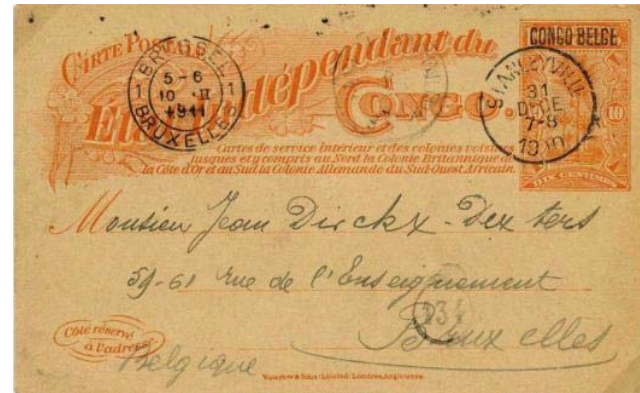 CARTE POSTALE
CONGO BELGE
État Indépendant du
CONGO.
BRUSSEL
1 5-6 1
10 II
1911
BRUXELLES
STANLEYVILLE
31
DECE
7-8
1910
10
DIX CENTIMES
Cartes de service intérieur et des colonies voisines
jusques et y compris au Nord la Colonie Britannique de
la Côte d'Or et au Sud la Colonie Allemande du Sud-Ouest Africain.
Monsieur Jean Dirckx-Dexters
59-61 rue de l'Enseignement
Bruxelles
Côté réservé
à l'adresse
Belgique
Waterlow & Sons Limited, Londres, Angleterre.